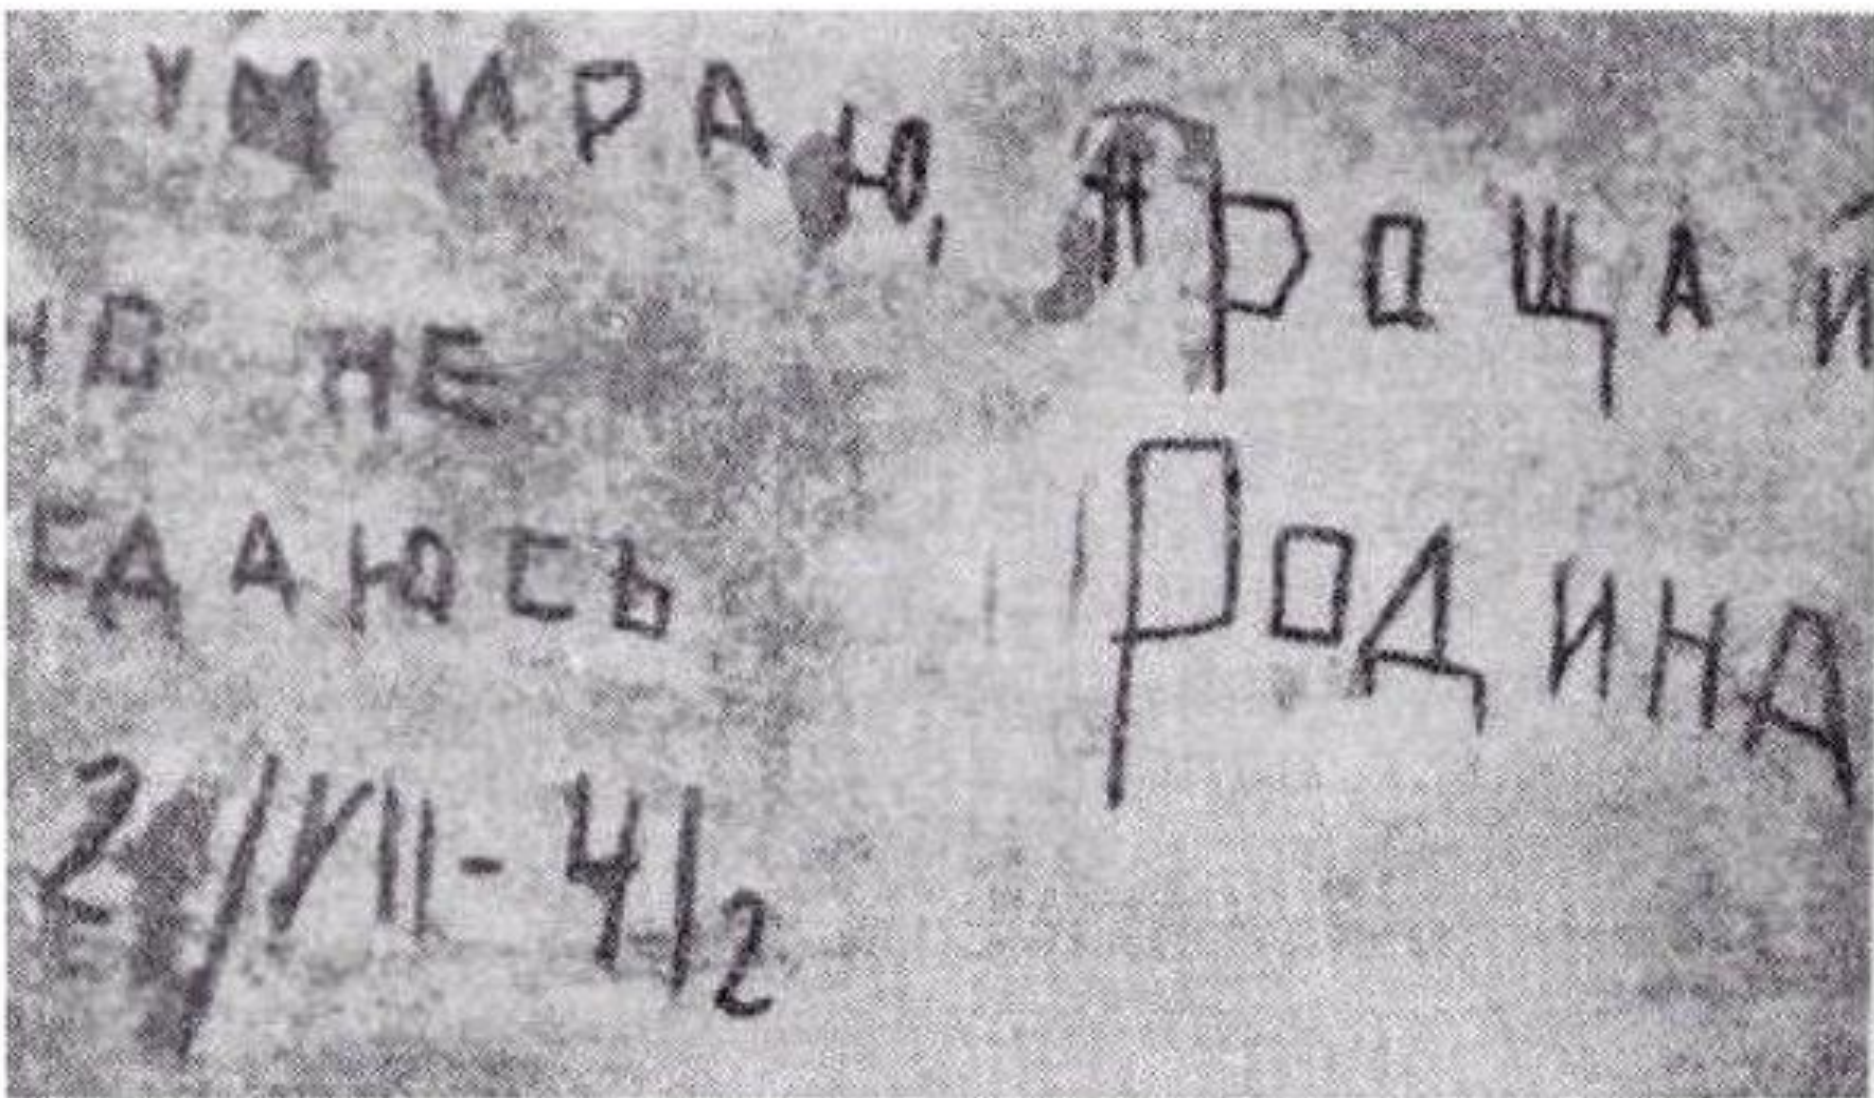 УМИРАЮ, ПРОЩАЙ
НО НЕ
СДАЮСЬ РОДИНА
20/VII-41г